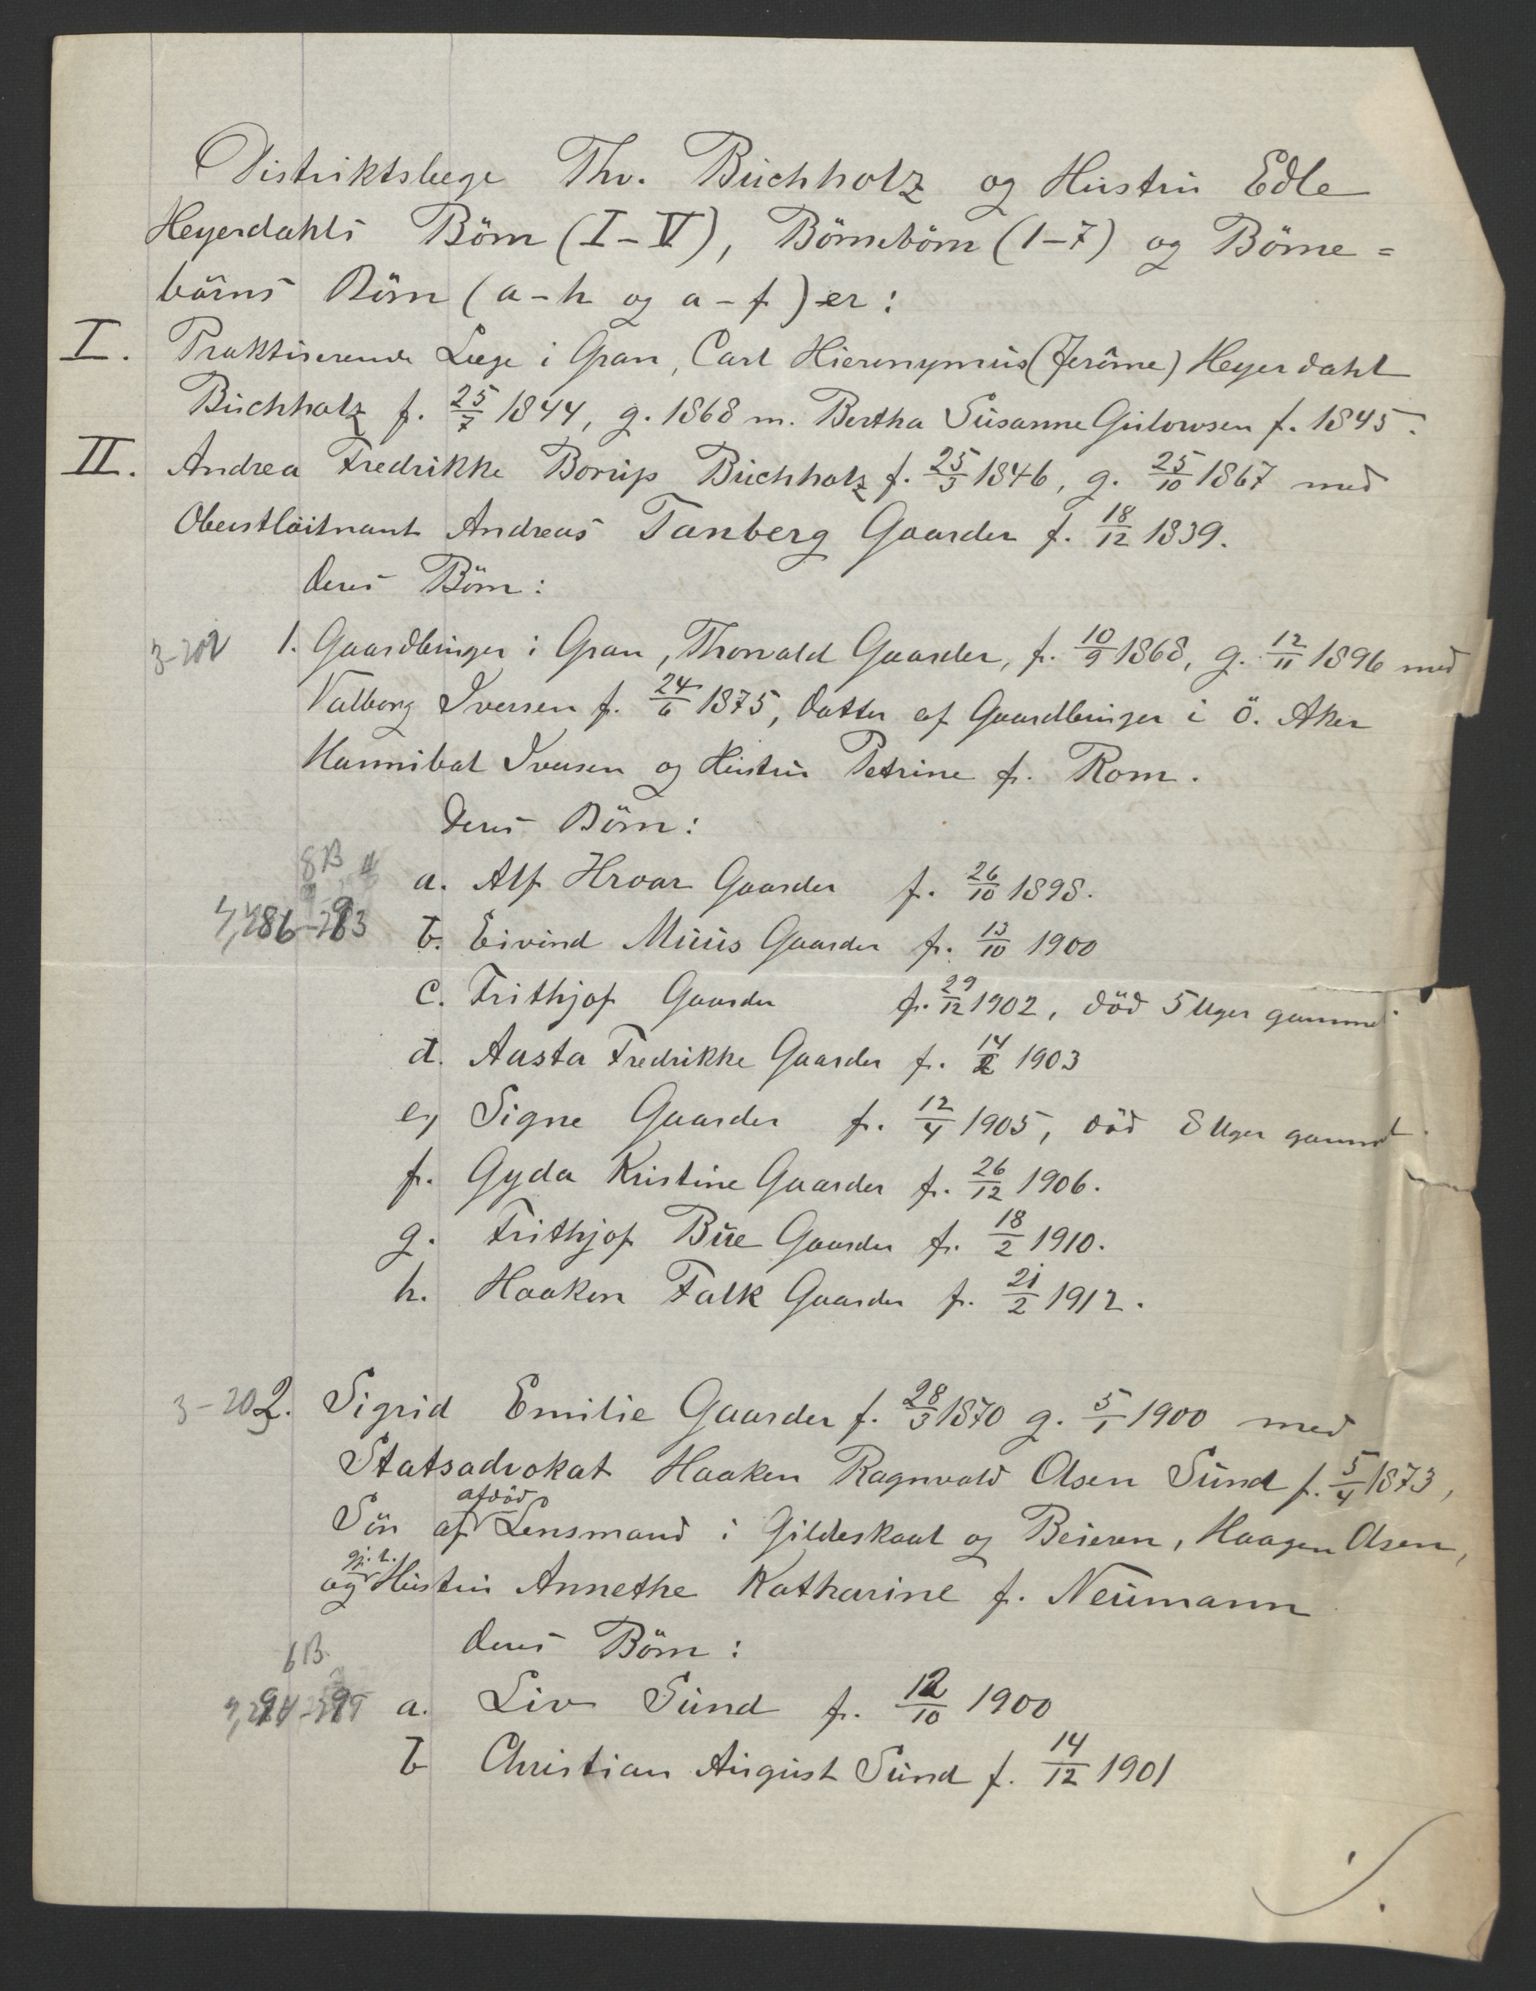 Distriktslæge Thv. Buchholz og Hustru Edle
Heyerdahls Börn (I-V), Börnebörn (1-7) og Börne=
börns Börn (a-h og a-f) er:
I. Praktiserende Læge i Gran, Carl Hieronymus (Jerôme) Heyerdahl
Buchholz f. 25/7 1844, g. 1868 m. Bertha Susanne Gulowsen f. 1845.
II. Andrea Fredrikke Borup Buchholz f. 25/3 1846, g. 25/10 1867 med
Oberstlöitnant Andreas Tanberg Gaarder f. 18/12 1839.
deres Börn:
3-202 1. Gaardbruger i Gran, Thorvald Gaarder, f. 10/9 1868, g. 12/11 1896 med
Valborg Iversen f. 24/6 1875, datter af Gaardbruger i Ö. Aker
Hannibal Iversen og Hustru Petrine f. Rom.
deres Börn:
8B
a. Alf Hroar Gaarder f. 26/10 1898.
b. Eivind Muus Gaarder f. 13/10 1900
c. Frithjof Gaarder f. 29/12 1902, död 5 Uger gammel
d. Aasta Fredrikke Gaarder f. 14/2 1903
e, Signe Gaarder f. 12/4 1905, död 8 Uger gammel.
f. Gyda Kristine Gaarder f. 26/12 1906.
g. Frithjof Bue Gaarder f. 18/2 1910.
h. Haaken Falk Gaarder f. 21/2 1912.
3-203 2. Sigrid Emilie Gaarder f. 28/3 1870 g. 5/1 1900 med
Statsadvokat Haaken Ragnvald Olsen Sund f. 5/4 1873,
Sön af afdöd Lensmand i Gildeskaal og Beieren, Haagen Olsen,
og Hustru Annethe Katharine f. Neumann
deres Börn:
6B.
a. Liv Sund f. 12/10 1900
b Christian August Sund f. 14/12 1901